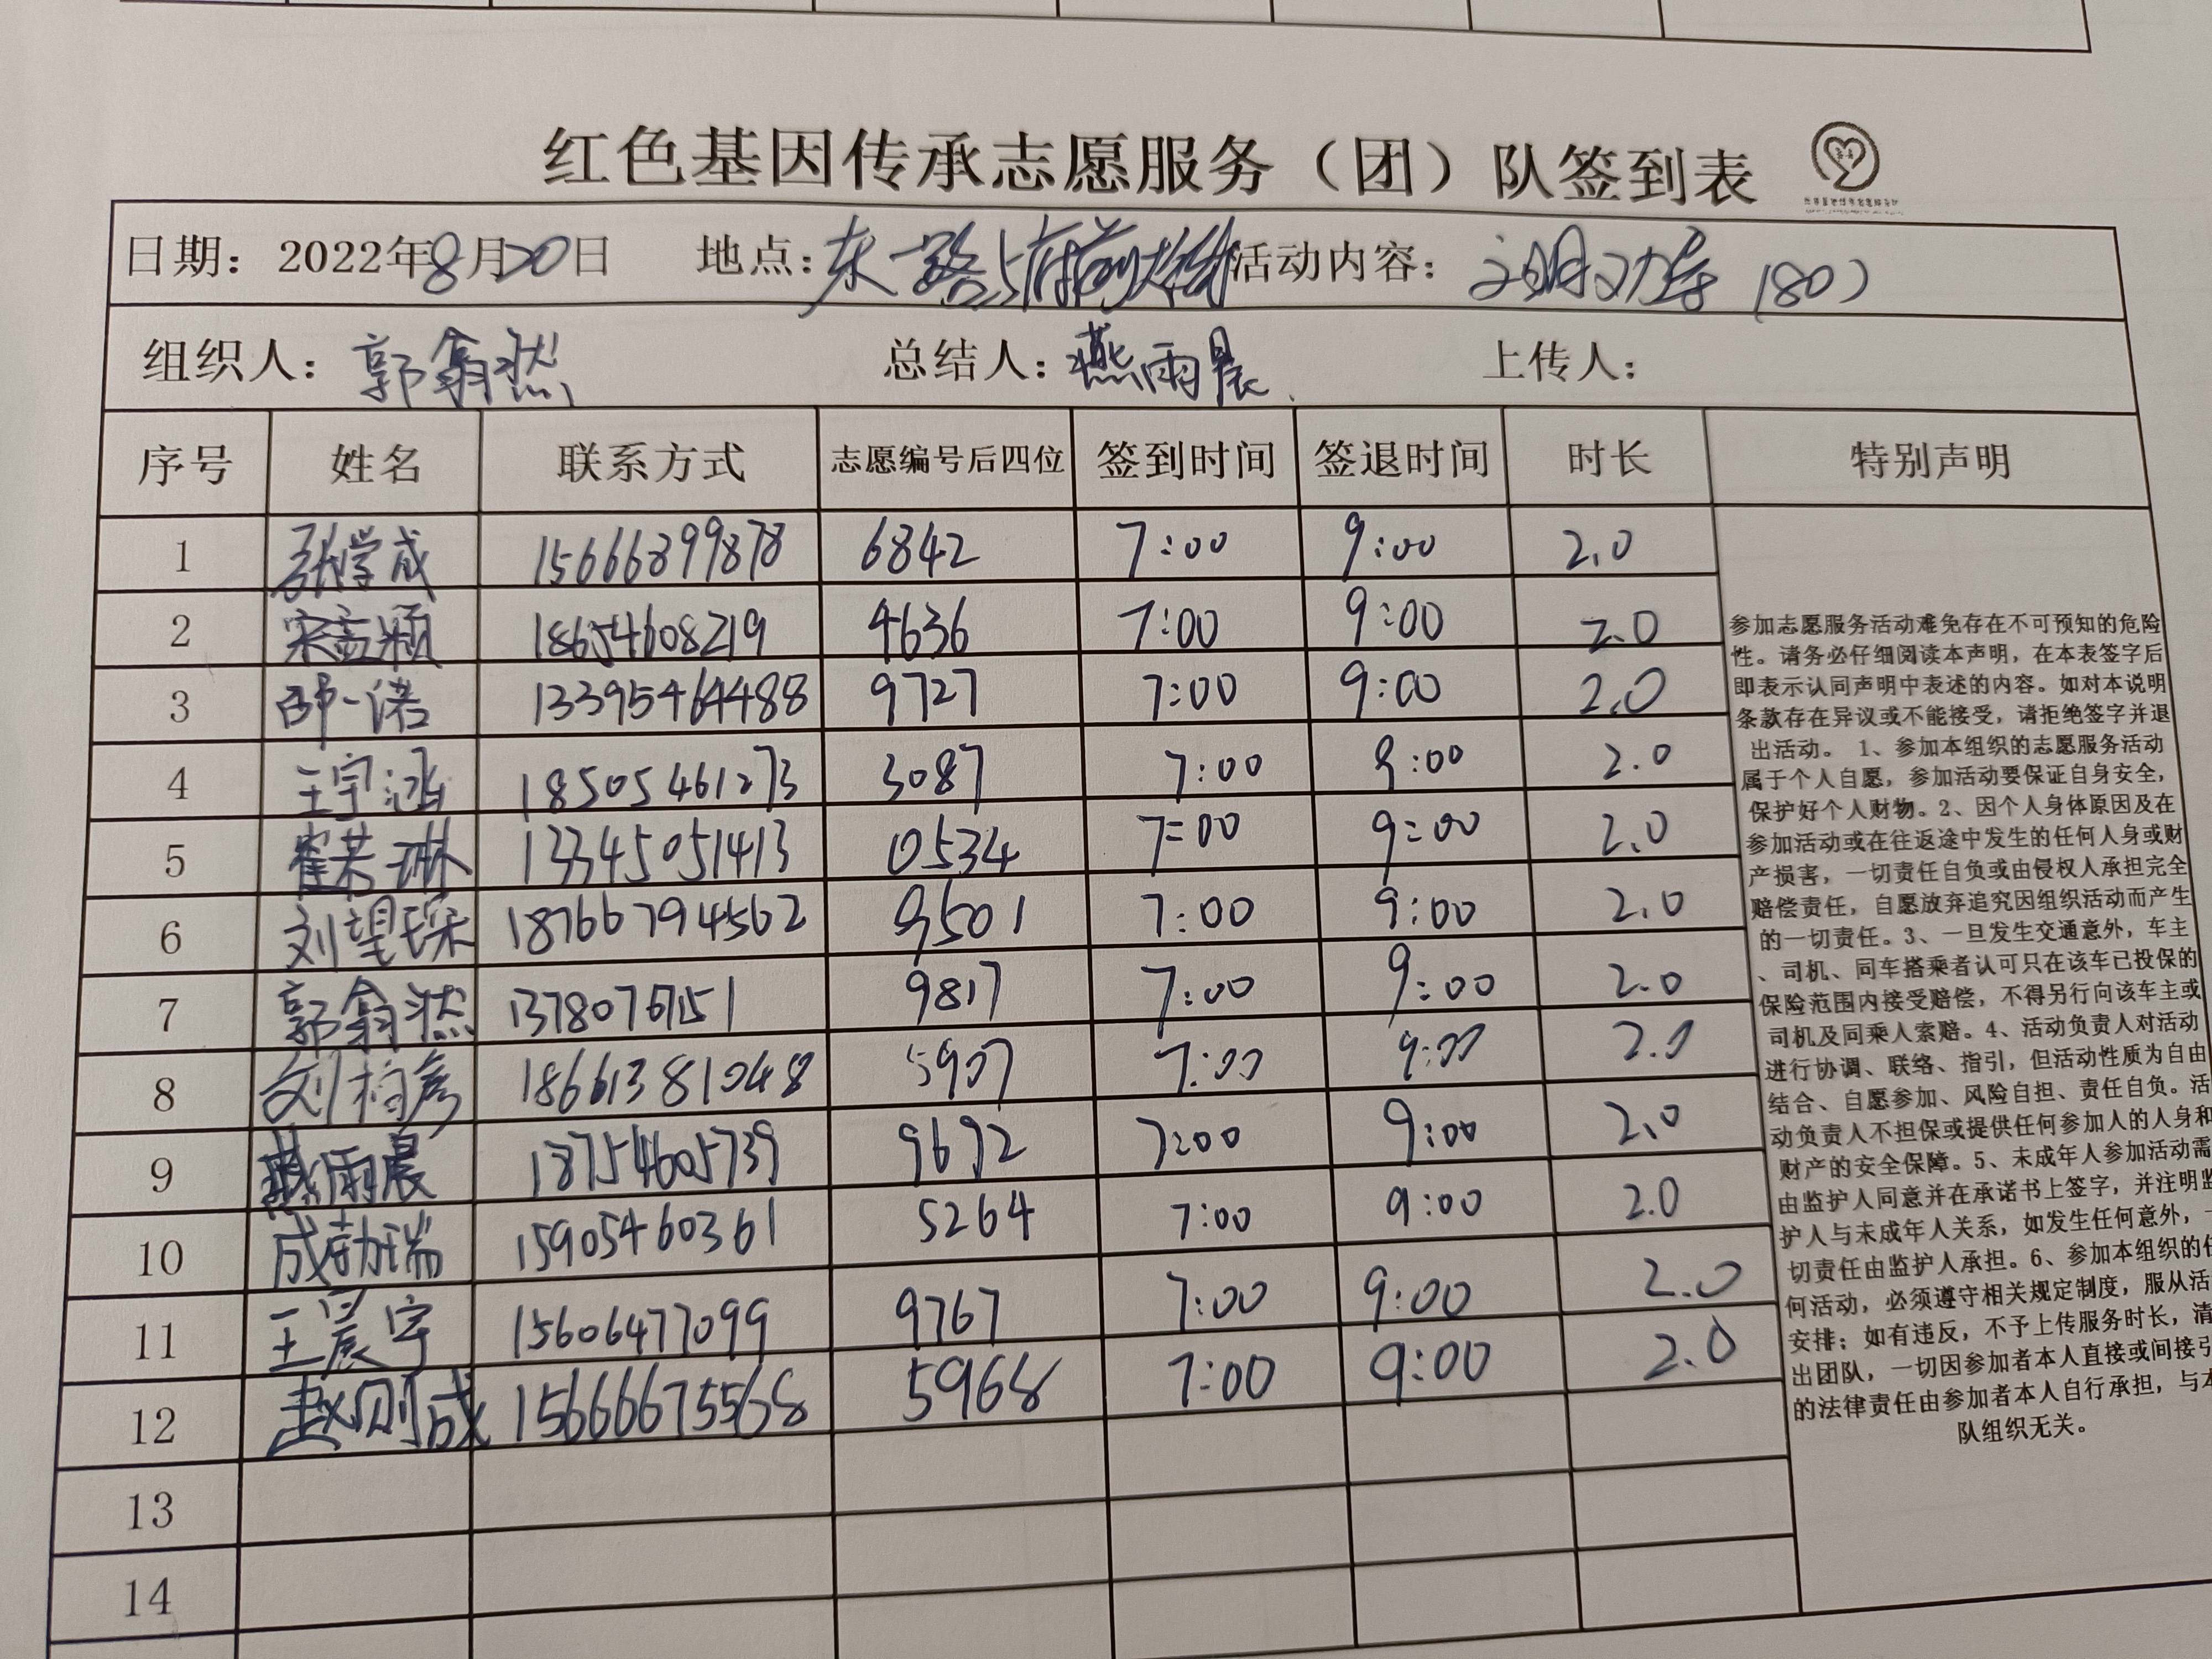 红色基因传承志愿服务（团）队签到表
日期：2022年8月20日 地点：东一路与府前大街 活动内容：文明劝导（80）
组织人：郭翕然 总结人：燕雨晨 上传人：
序号 姓名 联系方式 志愿编号后四位 签到时间 签退时间 时长 特别声明
1 张学成 15666899878 6842 7:00 9:00 2.0
2 宋孟颖 18654608219 4636 7:00 9:00 2.0
3 邵一诺 13395464488 9727 7:00 9:00 2.0
4 王宇涵 18505461273 3087 7:00 9:00 2.0
5 崔若琳 13345051413 0534 7:00 9:00 2.0
6 刘望琛 18766794562 9501 7:00 9:00 2.0
7 郭翕然 9817 7:00 9:00 2.0
8 刘柏彦 18661381048 5907 7:00 9:00 2.0
9 燕雨晨 18754605739 9692 7:00 9:00 2.0
10 成勃瑞 15905460361 5264 7:00 9:00 2.0
11 王晨宇 15606477099 9767 7:00 9:00 2.0
12 赵则成 15666675568 5968 7:00 9:00 2.0
13
14
参加志愿服务活动难免存在不可预知的危险
性。请务必仔细阅读本声明，在本表签字后
即表示认同声明中表述的内容。如对本说明
条款存在异议或不能接受，请拒绝签字并退
出活动。 1、参加本组织的志愿服务活动
属于个人自愿，参加活动要保证自身安全，
保护好个人财物。2、因个人身体原因及在
参加活动或在往返途中发生的任何人身或财
产损害，一切责任自负或由侵权人承担完全
赔偿责任，自愿放弃追究因组织活动而产生
的一切责任。3、一旦发生交通意外，车主
、司机、同车搭乘者认可只在该车已投保的
保险范围内接受赔偿，不得另行向该车主或
司机及同乘人索赔。4、活动负责人对活动
进行协调、联络、指引，但活动性质为自由
结合、自愿参加、风险自担、责任自负。活
动负责人不担保或提供任何参加人的人身和
财产的安全保障。5、未成年人参加活动需
由监护人同意并在承诺书上签字，并注明监
护人与未成年人关系，如发生任何意外，一
切责任由监护人承担。6、参加本组织的任
何活动，必须遵守相关规定制度，服从活
安排；如有违反，不予上传服务时长，清
出团队，一切因参加者本人直接或间接引
的法律责任由参加者本人自行承担，与本
队组织无关。